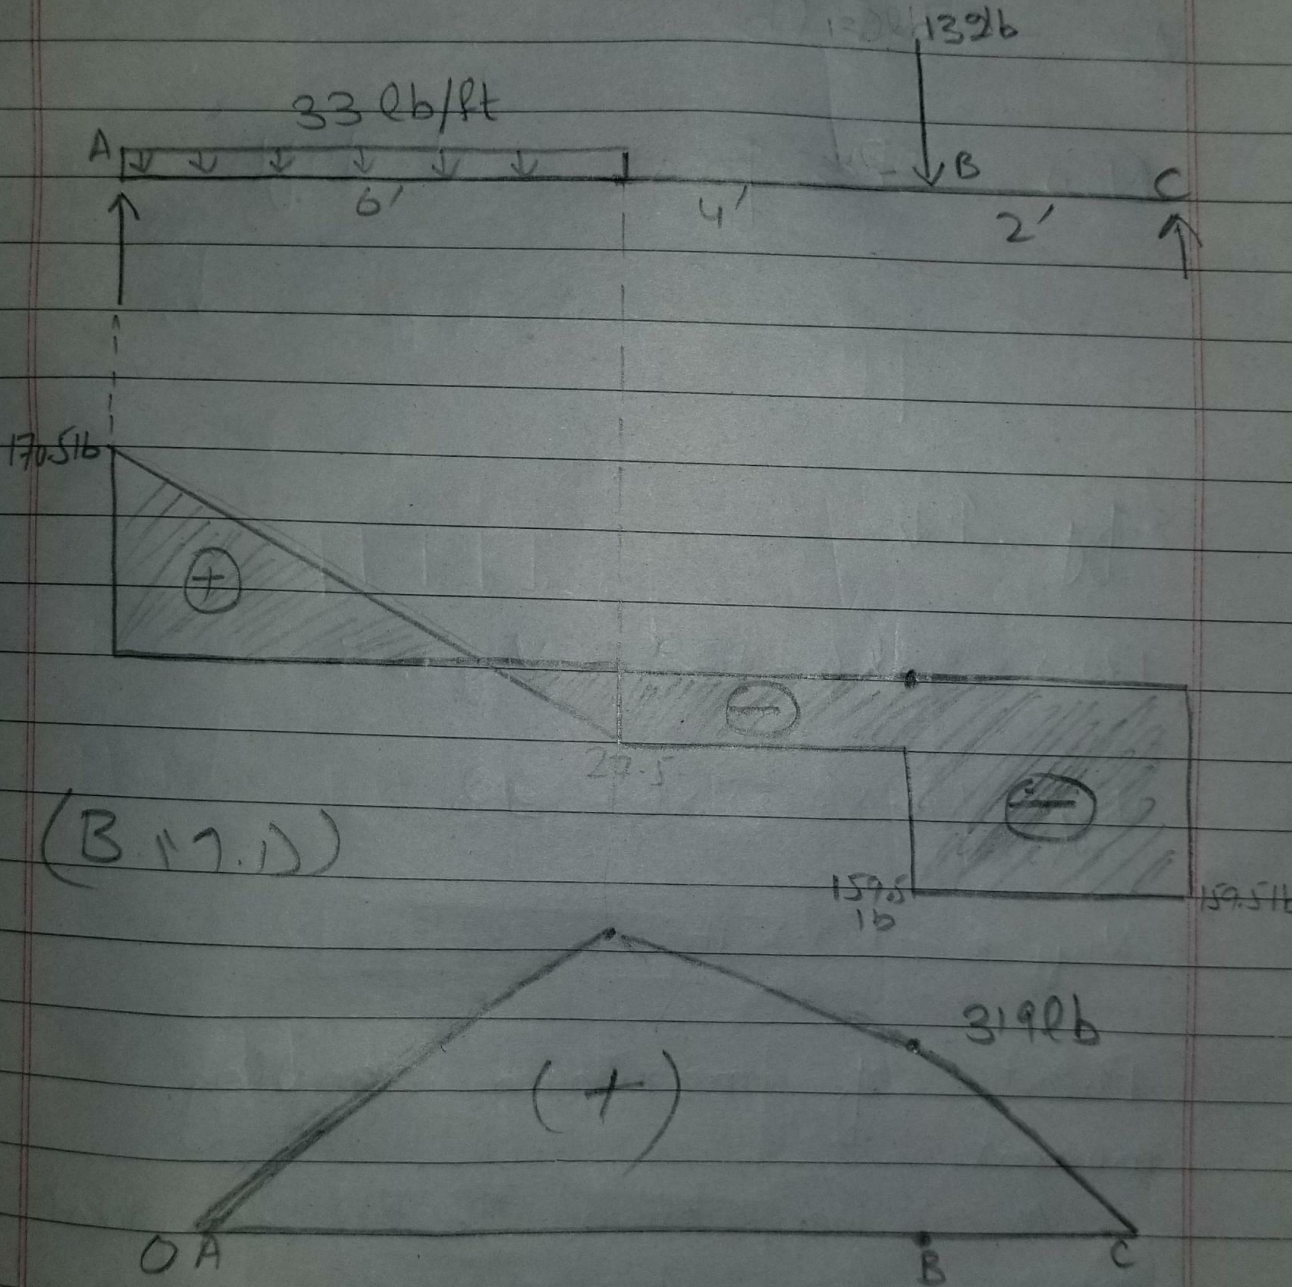 132lb
33 lb/ft
A
B
C
6'
4'
2'
170.5lb
+
−
27.5
−
(B.M.D)
159.5
lb
159.5lb
319lb
(+)
O A
B
C